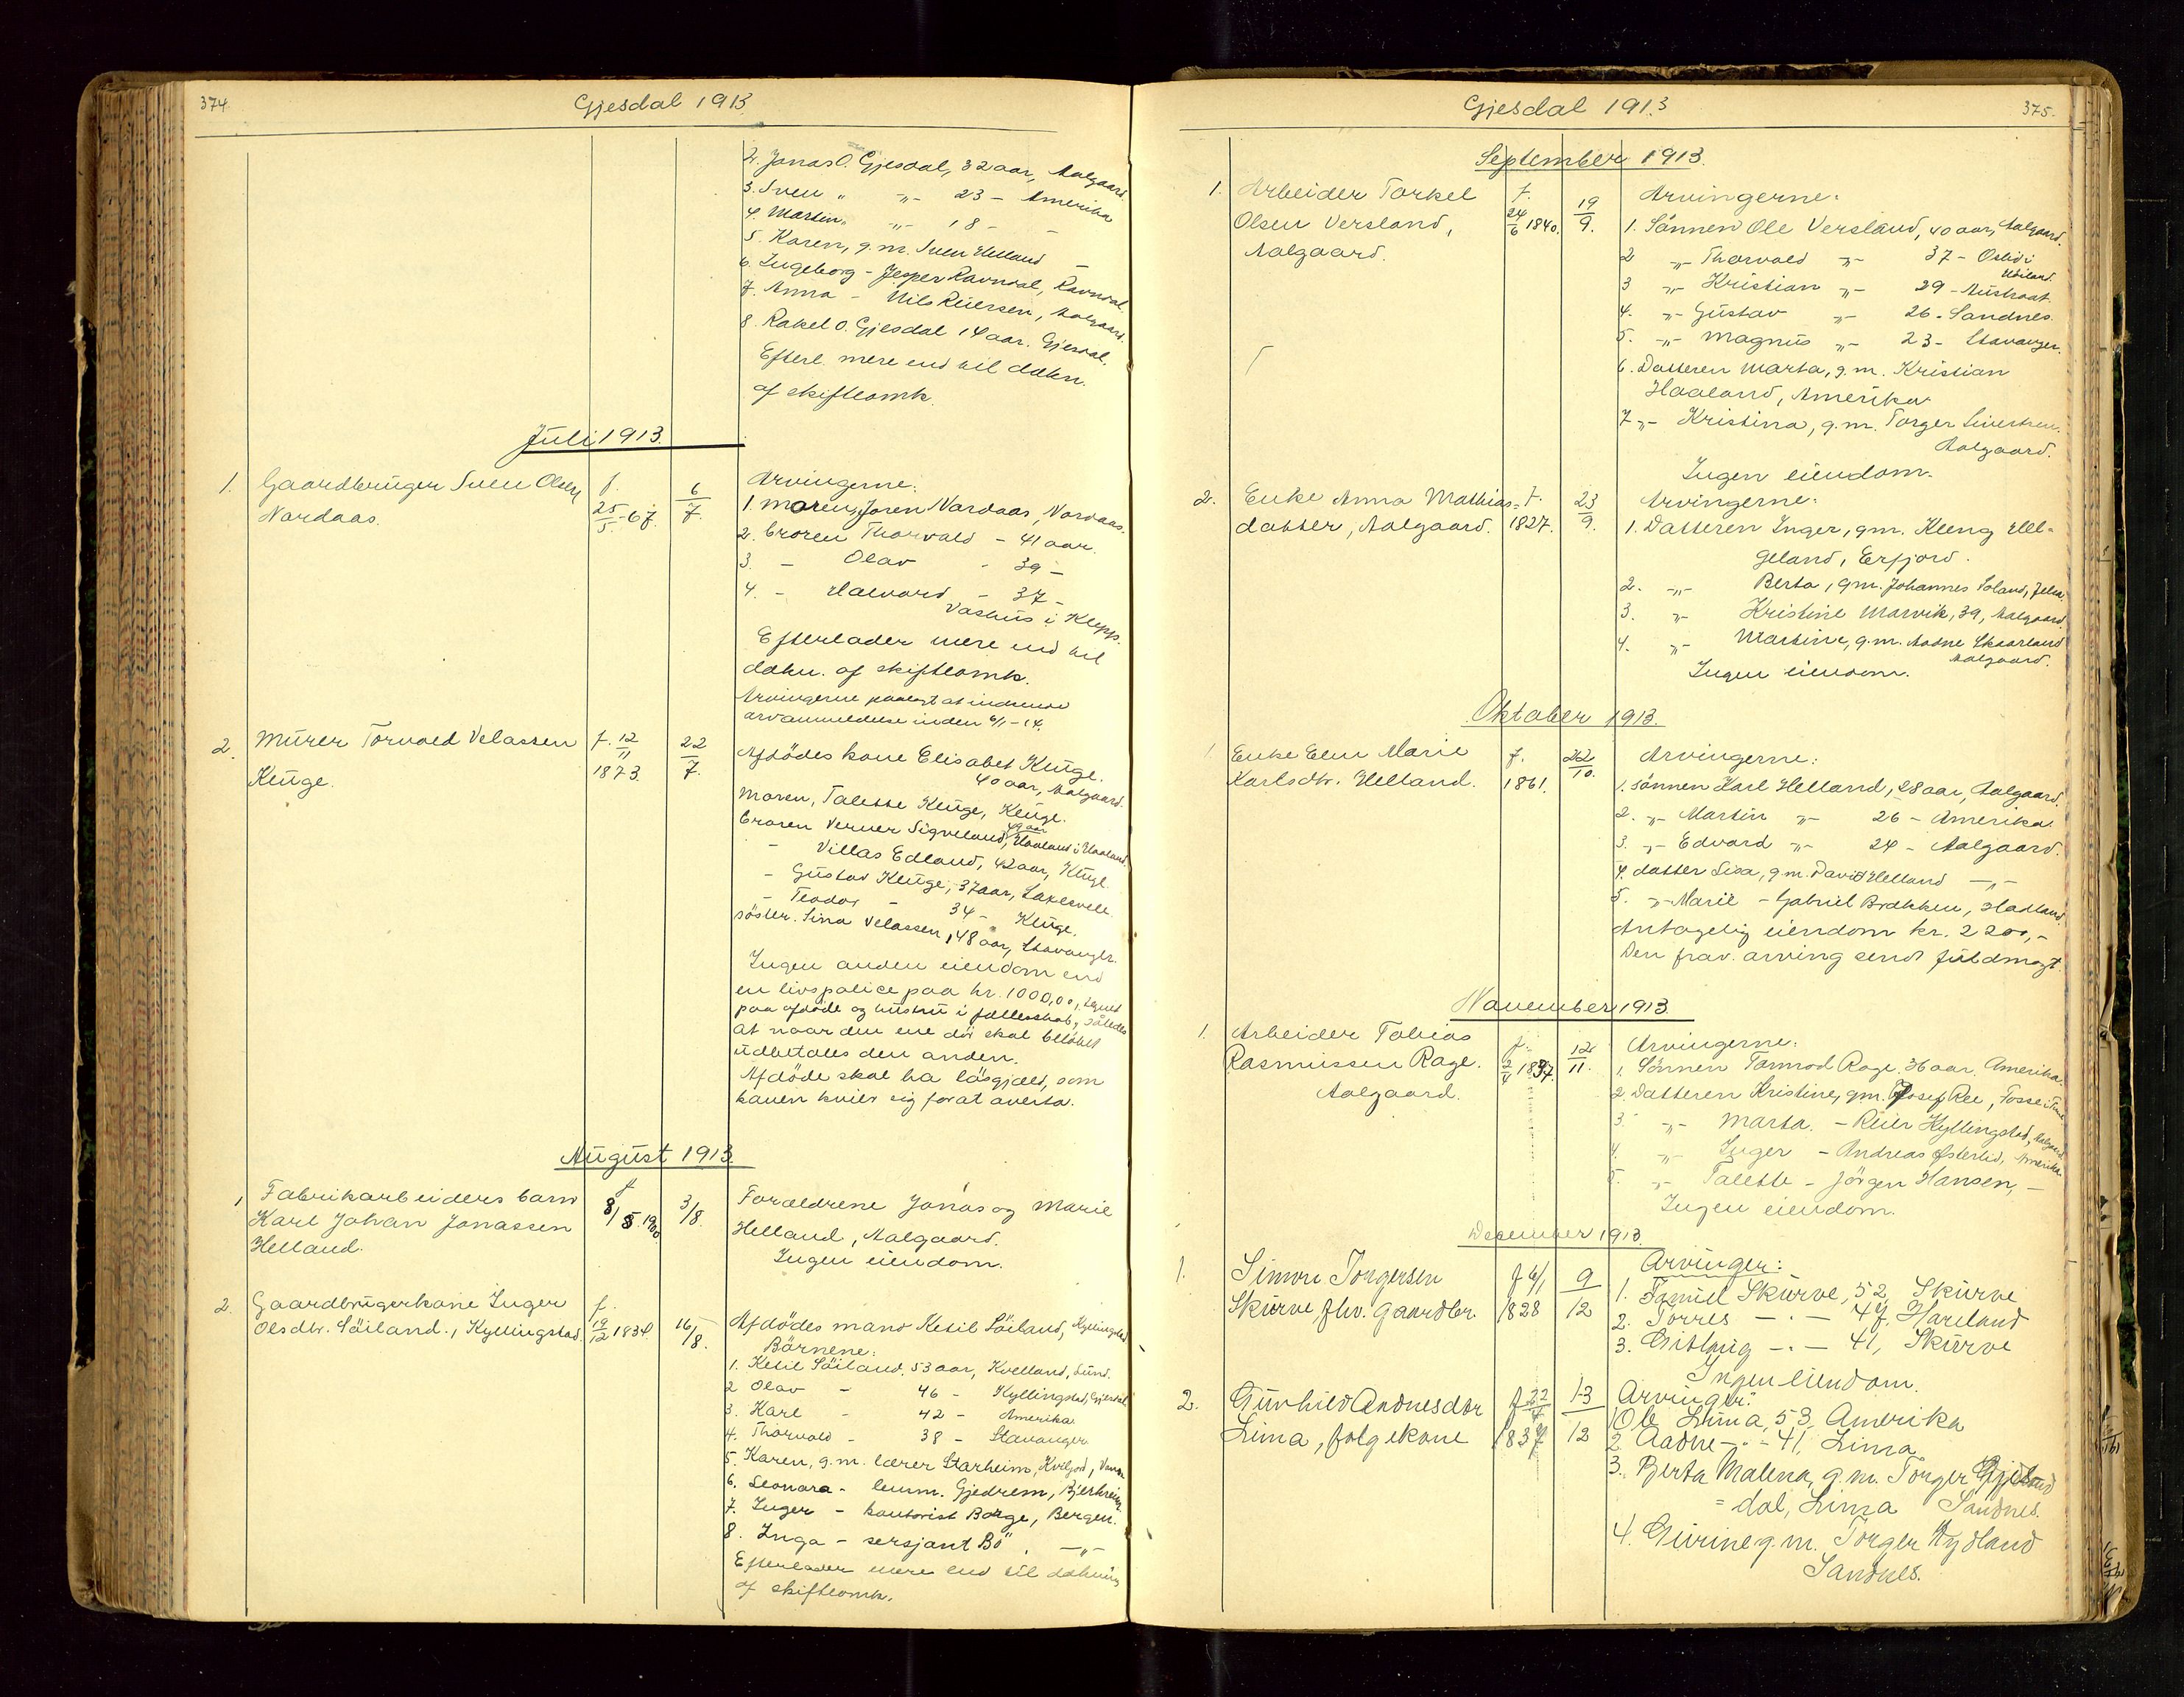 374.
Gjesdal 1913
2. Jonas O. Gjesdal, 32 aar, Aalgaard.
3. Sven " -"- 23 - Amerika
4. Martin " -"- 18 - -
5. Karen, g.m. Sven Helland -
6. Ingeborg - Jesper Ravndal, Ravndal.
7. Anna - Nils Reiersen, Aalgaard.
8. Rakel O. Gjesdal 14 aar. Gjesdal.
Efterl. mere end til dækn.
af skifteomk.
Juli 1913.
1. Gaardbruger Sven Olsen
Nordaas.
f.
25/5-67.
6/7.
Arvingerne:
1. Moren, Joren Nordaas, Nordaas.
2. Broren Thorvald - 41 aar.
3. - Olav - 39 -
4. - Halvard - 37 -
Vashus i Klepp.
Efterlader mere end til
dækn. af skifteomk.
Arvingerne paalagt at indsende
arvanmeldelse inden 6/1-14.
2. Murer Torvald Velassen
Kluge.
f. 12/11
1873.
22/7.
Afdödes kone Elisabet Kluge.
40 aar, Aalgaard.
Moren, Talette Kluge, Kluge.
Broren Verner Sigveland, 49 aar Haaland i Haaland.
- Villas Edland, 42 aar, Kluge.
- Gustav Kluge, 37 aar,
- Teodor - 34 - Kluge.
söster. Sina Velassen, 48 aar, Stavanger.
Ingen anden eiendom end
en livspolice paa kr. 1000,00, tegnet
paa afdöde og hustru i fællesskab, således
at naar den ene dör skal belöbet
udbetales den anden.
Afdöde skal ha lösgjæld, som
konen kvier sig for at overta.
August 1913.
1 Fabrikarbeiders barn
Karl Johan Jonassen
Helland.
f
8/5 1900
3/8.
Forældrene Jonas og Marie
Helland, Aalgaard.
Ingen eiendom.
2. Gaardbrugerkone Inger
Olsdtr. Söiland, Kyllingstad.
f.
19/12 1834.
16/8.
Afdödes mand Ketil Söiland, Kyllingstad
Börnene:
1. Ketil Söiland, 53 aar, Kvelland, Lund.
2 Olav - 46 - Kyllingstad, Gjesdal
3. Karl - 42 - Amerika
4. Thorvald - 38 - Stavanger
5. Karen, g.m. lærer Starheim,
6. Leonora - lensm. Gjedrem, Bjerkreim.
7. Inger - kontorist Børge, Bergen.
8. Inga - sersjant Bö. -"-
Efterlader mere end til dækning
af skifteomk.
Gjesdal 1913
375.
September 1913.
1. Arbeider Torkel
Olsen Versland,
Aalgaard.
f.
24/6 1840.
19/9.
Arvingerne:
1. Sönnen Ole Versland, 40 aar, Aalgaard.
2 -"- Thorvald -"- 37 - Oslid i
Höiland.
3 -"- Kristian -"- 29 - Austraat.
4. -"- Gustav -"- 26 - Sandnes.
5. -"- Magnus -"- 23 - Stavanger.
6. Datteren Marta, g.m. Kristian
Haaland, Amerika
7 -"- Kristina, g.m. Torger Sivertsen.
Aalgaard.
Ingen eiendom.
2. Enke Anna Mathias=
datter, Aalgaard.
f.
1827.
23/9.
Arvingerne:
1. Datteren Inger, gm. Kleng Hel=
geland, Erfjord.
2. -"- Berta, gm. Johannes Soland, Jelsa.
3. -"- Kristine Marvik, 39, Aalgaard.
4. -"- Martine, g.m. Aadne Skaarland
Aalgaard.
Ingen eiendom.
Oktober 1913.
1 Enke Elen Marie
Karlsdtr. Helland.
f.
1861.
22/10.
Arvingerne:
1. Sönnen Karl Helland, 28 aar, Aalgaard.
2. -"- Martin -"- 26 - Amerika.
3. -"- Edvard -"- 24 - Aalgaard.
4. datter Lisa, g.m. David Helland -"-
5. -"- Marie - Gabriel Brekken, Madland.
Antagelig eiendom kr. 2200,-
Den frav. arving sendt fuldmagt.
November 1913.
1. Arbeider Tobias
Rasmussen Rage.
Aalgaard.
f.
2/4 1837.
12/11.
Arvingerne:
1. Sönnen Tormod Rage, 36 aar. Amerika.
2. Datteren Kristine, gm. Josef Ree, Fosse i Time
3. -"- Marta - Reier Kyllingstad, Aalgaard
4. -"- Inger - Andreas Østerlid, Amerika
5. -"- Talette - Jörgen Hansen, -
Ingen eiendom.
December 1913.
1. Simon Torgersen
Skurve, fhv. gaardbr
f 6/1
1828
9/12
Arvinger:
1. Samuel Skurve, 52, Skurve
2. Torres - . - 47, Hareland
3. Gitlaug - . - 41, Skurve
Ingen eiendom.
2. Gunhild Aadnesdtr
Lima, folgekone
f 22/4
1837
13/12
Arvinger:
1 Ole Lima, 53, Amerika
2. Aadne - . - 41, Lima
3. Berta Malena, g.m. Torger
= dal, Lima Sandnes.
4. Gurine g.m. Torger Wydland
Sandnes.